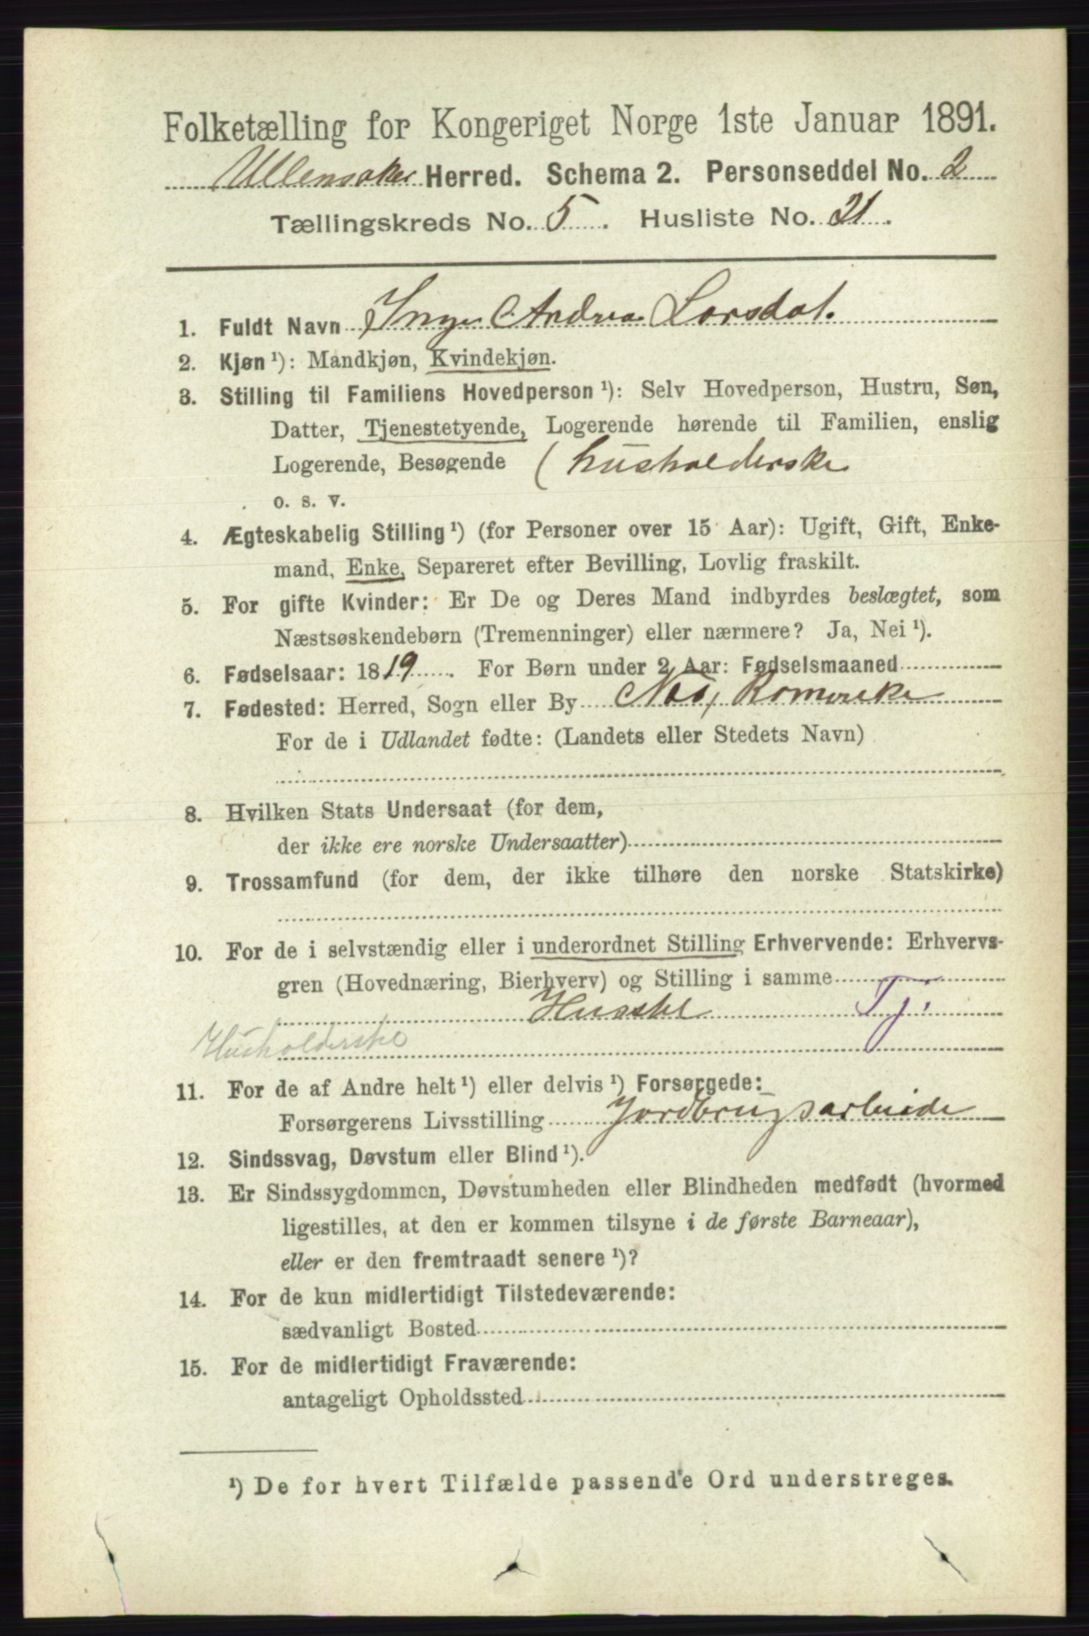 Folketælling for Kongeriget Norge 1ste Januar 1891.
Ullensaker Herred. Schema 2. Personseddel No. 2
Tællingskreds No. 5. Husliste No. 21.
1. Fuldt Navn Inger Andrea Lorsdal.
2. Kjøn ¹): Mandkjøn, Kvindekjøn.
3. Stilling til Familiens Hovedperson ¹): Selv Hovedperson, Hustru, Søn,
Datter, Tjenestetyende, Logerende hørende til Familien, enslig
Logerende, Besøgende (husholderske
o. s. v.
4. Ægteskabelig Stilling ¹) (for Personer over 15 Aar): Ugift, Gift, Enke-
mand, Enke, Separeret efter Bevilling, Lovlig fraskilt.
5. For gifte Kvinder: Er De og Deres Mand indbyrdes beslægtet, som
Næstsøskendebørn (Tremenninger) eller nærmere? Ja, Nei ¹).
6. Fødselsaar: 1819. For Børn under 2 Aar: Fødselsmaaned
7. Fødested: Herred, Sogn eller By Næs, Romerike
For de i Udlandet fødte: (Landets eller Stedets Navn)
8. Hvilken Stats Undersaat (for dem,
der ikke ere norske Undersaatter)
9. Trossamfund (for dem, der ikke tilhøre den norske Statskirke)
10. For de i selvstændig eller i underordnet Stilling Erhvervende: Erhvervs-
gren (Hovednæring, Bierhverv) og Stilling i samme
Husstel Tj.
Husholderske
11. For de af Andre helt ¹) eller delvis ¹) Forsørgede:
Forsørgerens Livsstilling Jordbrugsarbeide
12. Sindssvag, Døvstum eller Blind ¹).
13. Er Sindssygdommen, Døvstumheden eller Blindheden medfødt (hvormed
ligestilles, at den er kommen tilsyne i de første Barneaar),
eller er den fremtraadt senere ¹)?
14. For de kun midlertidigt Tilstedeværende:
sædvanligt Bosted
15. For de midlertidigt Fraværende:
antageligt Opholdssted
¹) De for hvert Tilfælde passende Ord understreges.